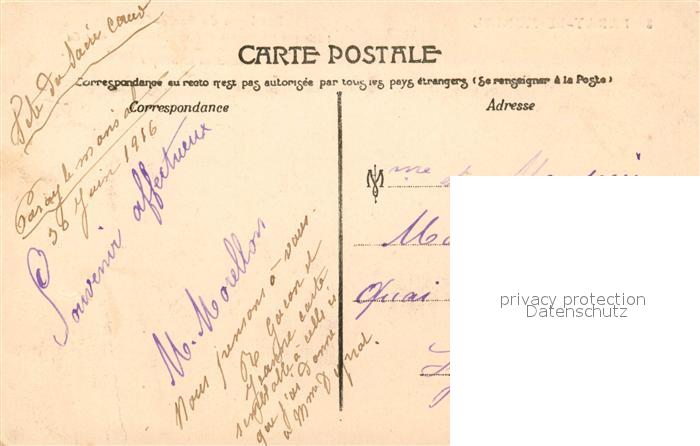 CARTE POSTALE
Correspondance au recto n'est pas autorisée par tous les pays étrangers (Se renseigner à la Poste)
Correspondance
Adresse
Fete du Sacré Coeur
Paray le monial
30 Juin 1916
Souvenir affectueux
M. Morellon
Nous pensons à vous.
carte
semblable à celle
que j'ai donné
à Mme
Mme et
Quai
privacy protection
Datenschutz